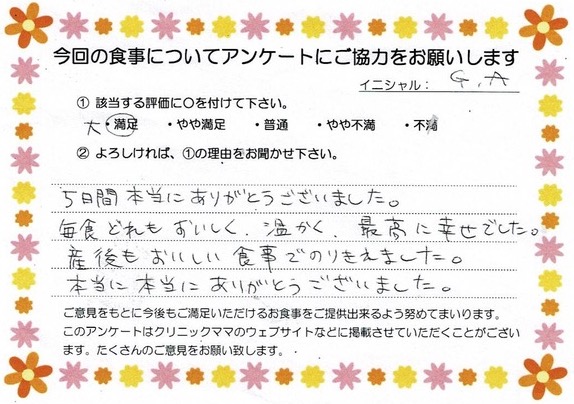 今回の食事についてアンケートにご協力をお願いします
イニシャル： G.A
① 該当する評価に〇を付けて下さい。
大・満足 ・やや満足 ・普通 ・やや不満 ・不満
② よろしければ、①の理由をお聞かせ下さい。
5日間本当にありがとうございました。
毎食どれもおいしく、温かく、最高に幸せでした。
産後もおいしい食事でのりきえました。
本当に本当にありがとうございました。
ご意見をもとに今後もご満足いただけるお食事をご提供出来るよう努めてまいります。
このアンケートはクリニックママのウェブサイトなどに掲載させていただくことがござい
ます。たくさんのご意見をお願い致します。